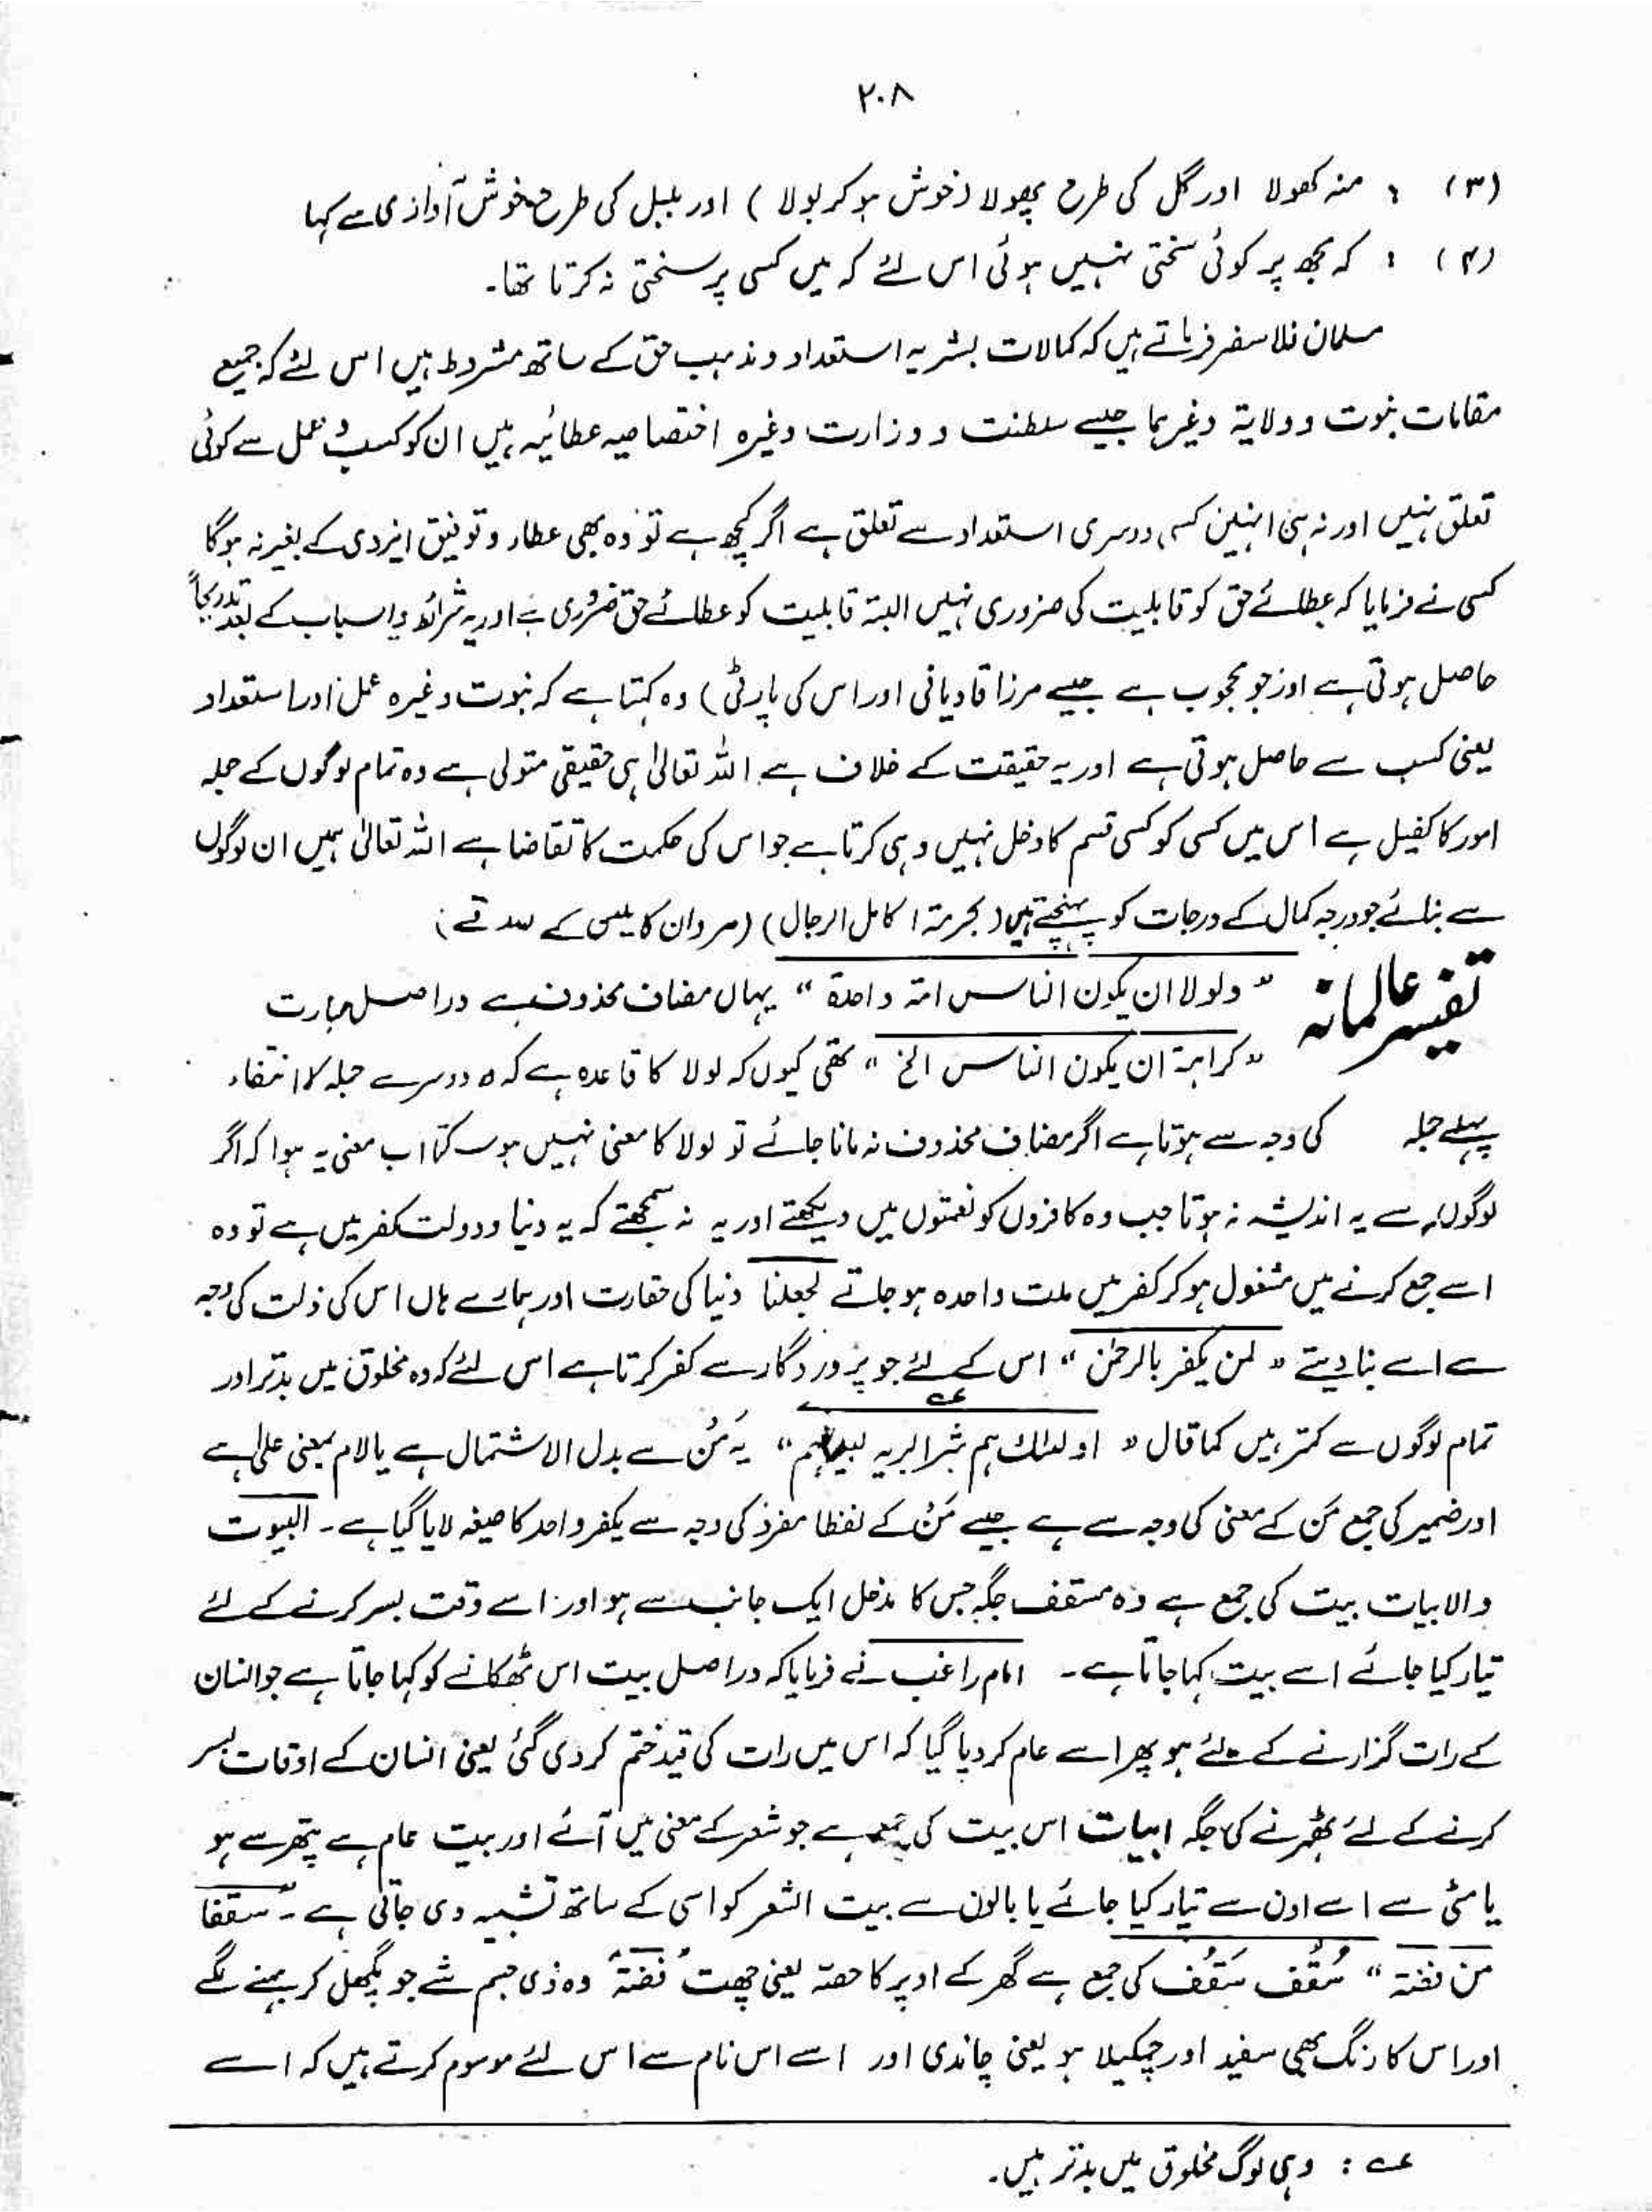 ۲۰۸
(۳) : منہ کھولا اور گل کی طرح پھولا (خوش ہو کر بولا) اور بلبل کی طرح خوش آوازی سے کہا
(۴) : کہ مجھ پر کوئی سختی نہیں ہوئی اس لئے کہ میں کسی پر سختی نہ کرتا تھا۔
مسلمان فلاسفر فرماتے ہیں کہ کمالات بشریہ استعداد و مذہب حق کے ساتھ مشروط ہیں اس لئے کہ جمیع
مقامات نبوت و ولایۃ وغیرہما جیسے سلطنت و وزارت وغیرہ اختصاصیہ عطائیہ ہیں ان کو کسب و عمل سے کوئی
تعلق نہیں اور نہ ہی انہیں کسی دوسری استعداد سے تعلق ہے اگر کچھ ہے تو وہ بھی عطاء و توفیق ایزدی کے بغیر نہ ہوگا
کسی نے فرمایا کہ عطائے حق کو قابلیت کی ضروری نہیں البتہ قابلیت کو عطائے حق ضروری ہے اور یہ شرائط و اسباب کے بعد تدریجاً
حاصل ہوتی ہے اور جو محجوب ہے جیسے مرزا قادیانی اور اس کی پارٹی) وہ کہتا ہے کہ نبوت وغیرہ عمل اور استعداد
یعنی کسب سے حاصل ہوتی ہے اور یہ حقیقت کے خلاف ہے اللہ تعالیٰ ہی حقیقی متولی ہے وہ تمام لوگوں کے جملہ
امور کا کفیل ہے اس میں کسی کو کسی قسم کا دخل نہیں وہی کرتا ہے جو اس کی حکمت کا تقاضا ہے اللہ تعالیٰ ہمیں ان لوگوں
سے بنائے جو درجہ کمال کے درجات کو پہنچتے ہیں (بحرمۃ اکامل الرجال) (مردان کاملین کے صدقے)
تفسیر عالمانہ "ولولا ان یکون الناس امۃ واحدۃ" یہاں مضاف محذوف ہے دراصل عبارت
"کراہۃ ان یکون الناس الخ" تھی کیوں کہ لولا کا قاعدہ ہے کہ دوسرے جملہ کا انتفاء
پہلے جملہ کی وجہ سے ہوتا ہے اگر مضاف محذوف نہ مانا جائے تو لولا کا معنی نہیں ہو سکتا اب معنی یہ ہوا کہ اگر
لوگوں سے یہ اندیشہ نہ ہوتا جب وہ کافروں کو نعمتوں میں دیکھتے اور یہ نہ سمجھتے کہ یہ دنیا و دولت کفر میں ہے تو وہ
اسے جمع کرنے میں مشغول ہو کر کفر میں ملت واحدہ ہو جاتے لجعلنا دنیا کی حقارت اور ہمارے ہاں اس کی ذلت کی وجہ
سے اسے بنا دیتے "لمن یکفر بالرحمٰن" اس کے لئے جو پروردگار سے کفر کرتا ہے اس لئے کہ وہ مخلوق میں بدتر اور
تمام لوگوں سے کمتر ہیں کما قال "اولئک ہم شر البریہ لبیوتہم" یہ مَنْ سے بدل الاشتمال ہے یا لام بمعنی علیٰ ہے
اور ضمیر کی جمع مَن کے معنی کی وجہ سے ہے جیسے مَنْ کے لفظا مفرد کی وجہ سے یکفر واحد کا صیغہ لایا گیا ہے۔ البیوت
والابیات بیت کی جمع ہے وہ مسقف جگہ جس کا مدخل ایک جانب سے ہو اور اسے وقت بسر کرنے کے لئے
تیار کیا جائے اسے بیت کہا جاتا ہے۔ امام راغب نے فرمایا کہ دراصل بیت اس ٹھکانے کو کہا جاتا ہے جو انسان
کے رات گزارنے کے لئے ہو پھر اسے عام کر دیا گیا کہ اس میں رات کی قید ختم کر دی گئی یعنی انسان کے اوقات بسر
کرنے کے لئے ٹھہرنے کی جگہ ابیات اس بیت کی جمع ہے جو شعر کے معنی میں آئے اور بیت عام ہے پتھر سے ہو
یا مٹی سے اسے اون سے تیار کیا جائے یا بالون سے بیت الشعر کو اسی کے ساتھ تشبیہ دی جاتی ہے۔ "سقفا
من فضۃ" سُقُف سَقْف کی جمع ہے گھر کے اوپر کا حصہ یعنی چھت "فضۃ" وہ ذی جسم شے جو پگھل کر بہنے لگے
اور اس کا رنگ بھی سفید اور چمکیلا ہو یعنی چاندی اور اسے اس نام سے اس لئے موسوم کرتے ہیں کہ اسے
عـہ : وہی لوگ مخلوق میں بدتر ہیں۔